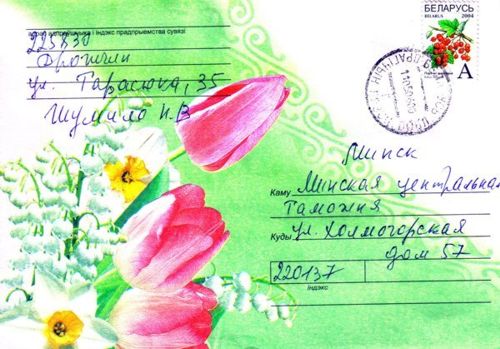 адрас адпраўшчыка і індэкс прадпрыемства сувязі
225830
Дрогичин
ул. Тарасюка, 35
Шумило И.В
БЕЛАРУСЬ
BELARUS 2004
A
Минск
Каму Минская центральная
Таможня
Куды ул. Холмогорская
дом 57
220137
Індэкс